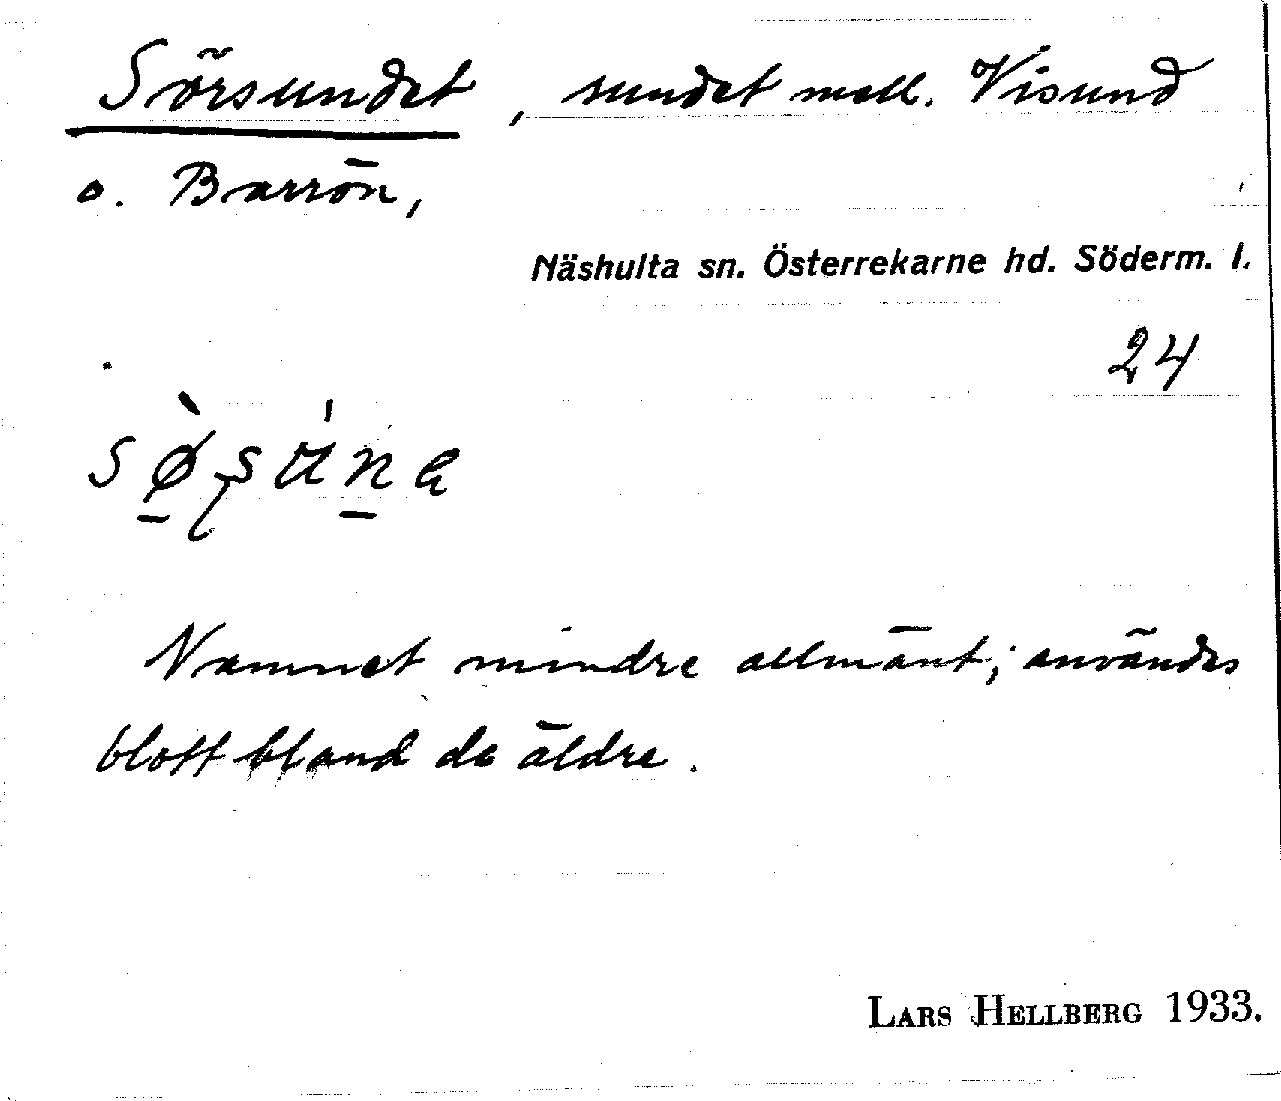 Sörsundet, sundet mell. Visund
o. Barrön,
Näshulta sn. Österrekarne hd. Söderm. l.
24
sø̱ʂu̇ṉa
Namnet mindre allmänt; användes
blott bland de äldre.
LARS HELLBERG 1933.